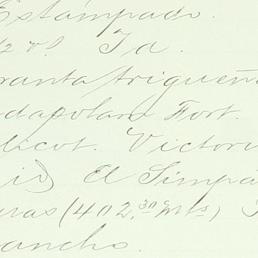 Estampado.
12 rl. Id.
ranta trigueña
dapolan Fort.
licot. Victori
El Simpá
uras (402,30 mts)
ancho.